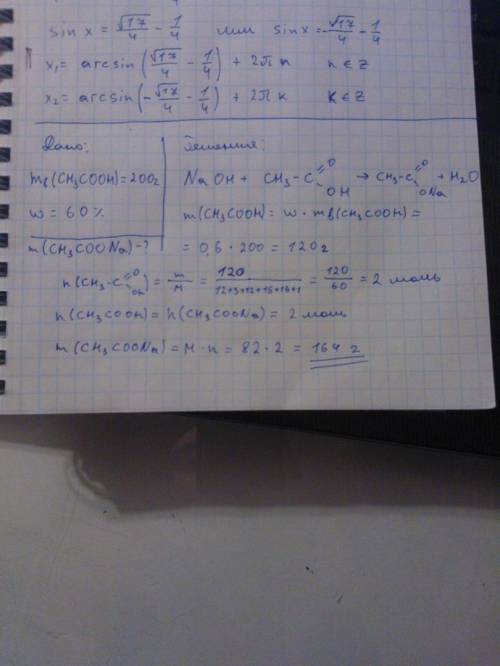 sin x = √17/4 - 1/4 или sin x = -√17/4 - 1/4
x₁ = arcsin(√17/4 - 1/4) + 2πn n ∈ Z
x₂ = arcsin(-√17/4 - 1/4) + 2πk k ∈ Z
Дано:
mв(CH₃COOH) = 200г
w = 60%
m(CH₃COONa) - ?
Решение:
NaOH + CH₃-C(=O)OH → CH₃-C(=O)ONa + H₂O
m(CH₃COOH) = w · mв(CH₃COOH) =
= 0,6 · 200 = 120г
n(CH₃-C(=O)OH) = m/M = 120/(12+3+12+16+16+1) = 120/60 = 2 моль
n(CH₃COOH) = n(CH₃COONa) = 2 моль
m(CH₃COONa) = M · n = 82 · 2 = 164 г